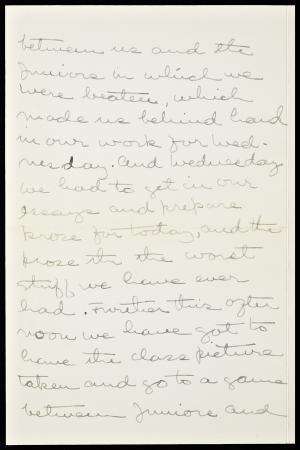 between us and the
Juniors in which we
were beaten, which
made us behind hand
in our work for Wed-
nesday. And Wednesday
we had to get in our
essays and prepare
prose for today, and the
prose is the worst
stuff we have ever
had. Further this after
noon we have got to
have the class picture
taken and go to a game
between Juniors and